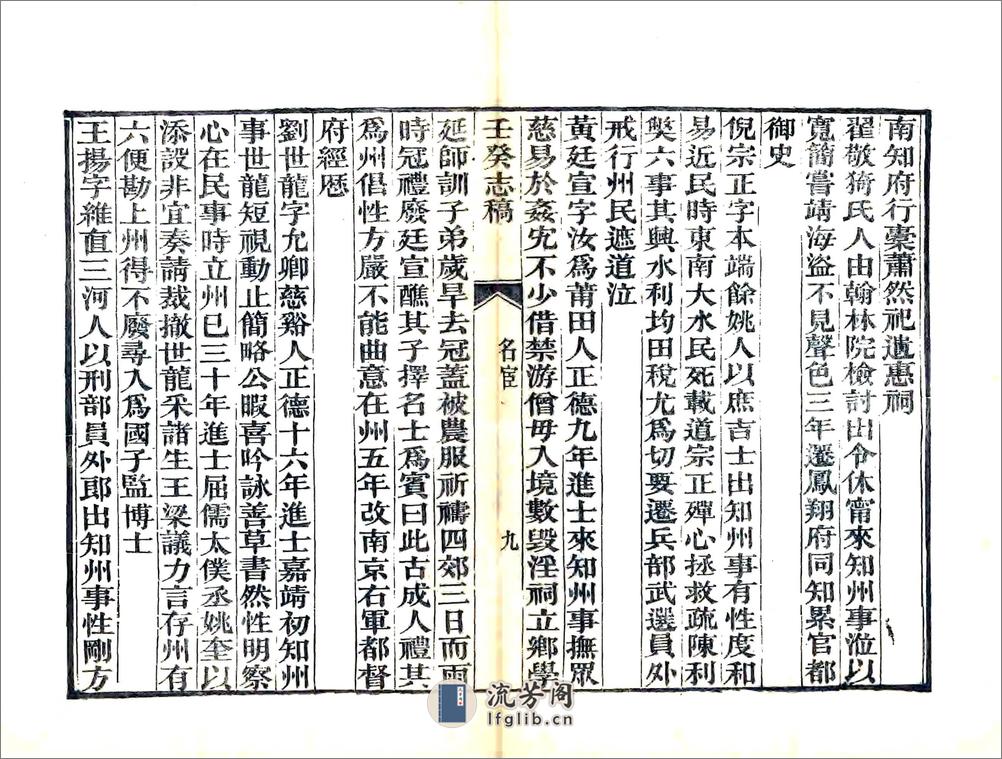 南知府行橐蕭然祀遺惠祠
翟敬猗氏人由翰林院檢討出令休甯來知州事涖以
寬簡嘗靖海盜不見聲色三年遷鳳翔府同知累官都
御史
倪宗正字本端餘姚人以庶吉士出知州事有性度和
易近民時東南大水民死載道宗正殫心拯救疏陳利
獘六事其興水利均田稅尤爲切要遷兵部武選員外
戒行州民遮道泣
黃廷宣字汝爲莆田人正德九年進士來知州事撫眾
慈易於姦宄不少借禁游僧毋入境數毀淫祠立鄉學
壬癸志稿
名宦
九
延師訓子弟歲旱去冠蓋被農服祈禱四郊三日而雨
時冠禮廢廷宣醮其子擇名士爲賓曰此古成人禮其
爲州倡性方嚴不能曲意在州五年改南京右軍都督
府經厯
劉世龍字允卿慈谿人正德十六年進士嘉靖初知州
事世龍短視動止簡略公暇喜吟詠善草書然性明察
心在民事時立州已三十年進士屈儒太僕丞姚奎以
添設非宜奏請裁撤世龍采諸生王梁議力言存州有
六便勘上州得不廢尋入爲國子監博士
王揚字維直三河人以刑部員外郎出知州事性剛方
流芳阁
lfglib.cn